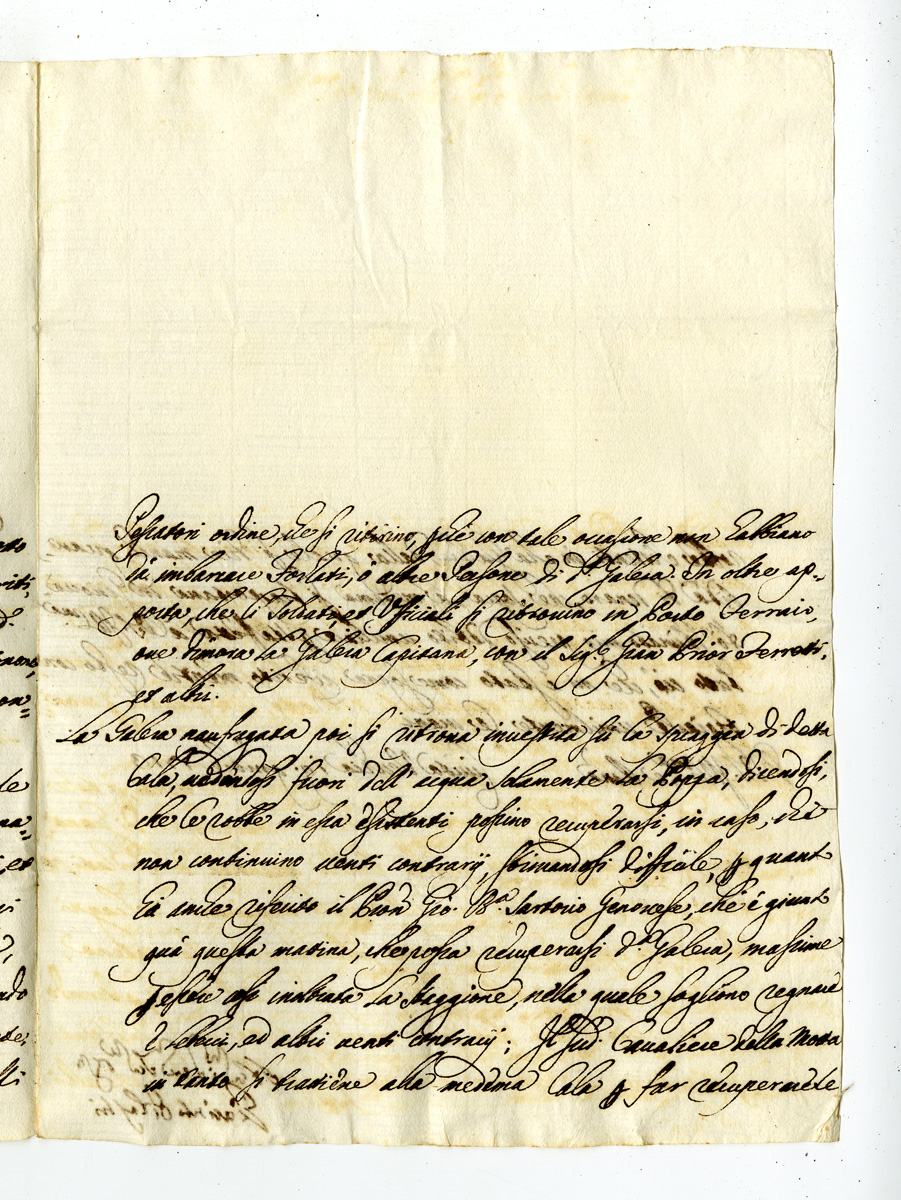 Pescatori ordine, che si ritirino, p che con tale occasione non habbiano
da imbarcare Forzati, ò altre Persone di d.ª Galera. In oltre ap=
porta, che li Soldati, et Vfficiali si ritrovino in Porto Ferraio,
oue dimora La Galera Capitana, con il Sig.r Gran Prior Ferretti,
et altri.
La Galera naufragata poi si ritroua inuestita sù la spiaggia di detta
Cala, uedendosi fuori dell' acqua solamente La Poppa, dicendosi,
che le robbe in essa esistenti possino recuperarsi, in caso, che
non continuino uenti contrarij, stimandosi difficile, p quant
hà anche riferito il Pron Gio. Bª. Sartorio Genovese, che è giunt
quà questa matina, che possa recuperarsi d.ª Galera, massime
p essere inoltrata La Staggione, nella quale sogliono regnare
i Lebecci, ed altri uenti contrarij; Il Sud.º Caualiere della Motta
in tanto si trattiene alla medema Cala p far recuperare le